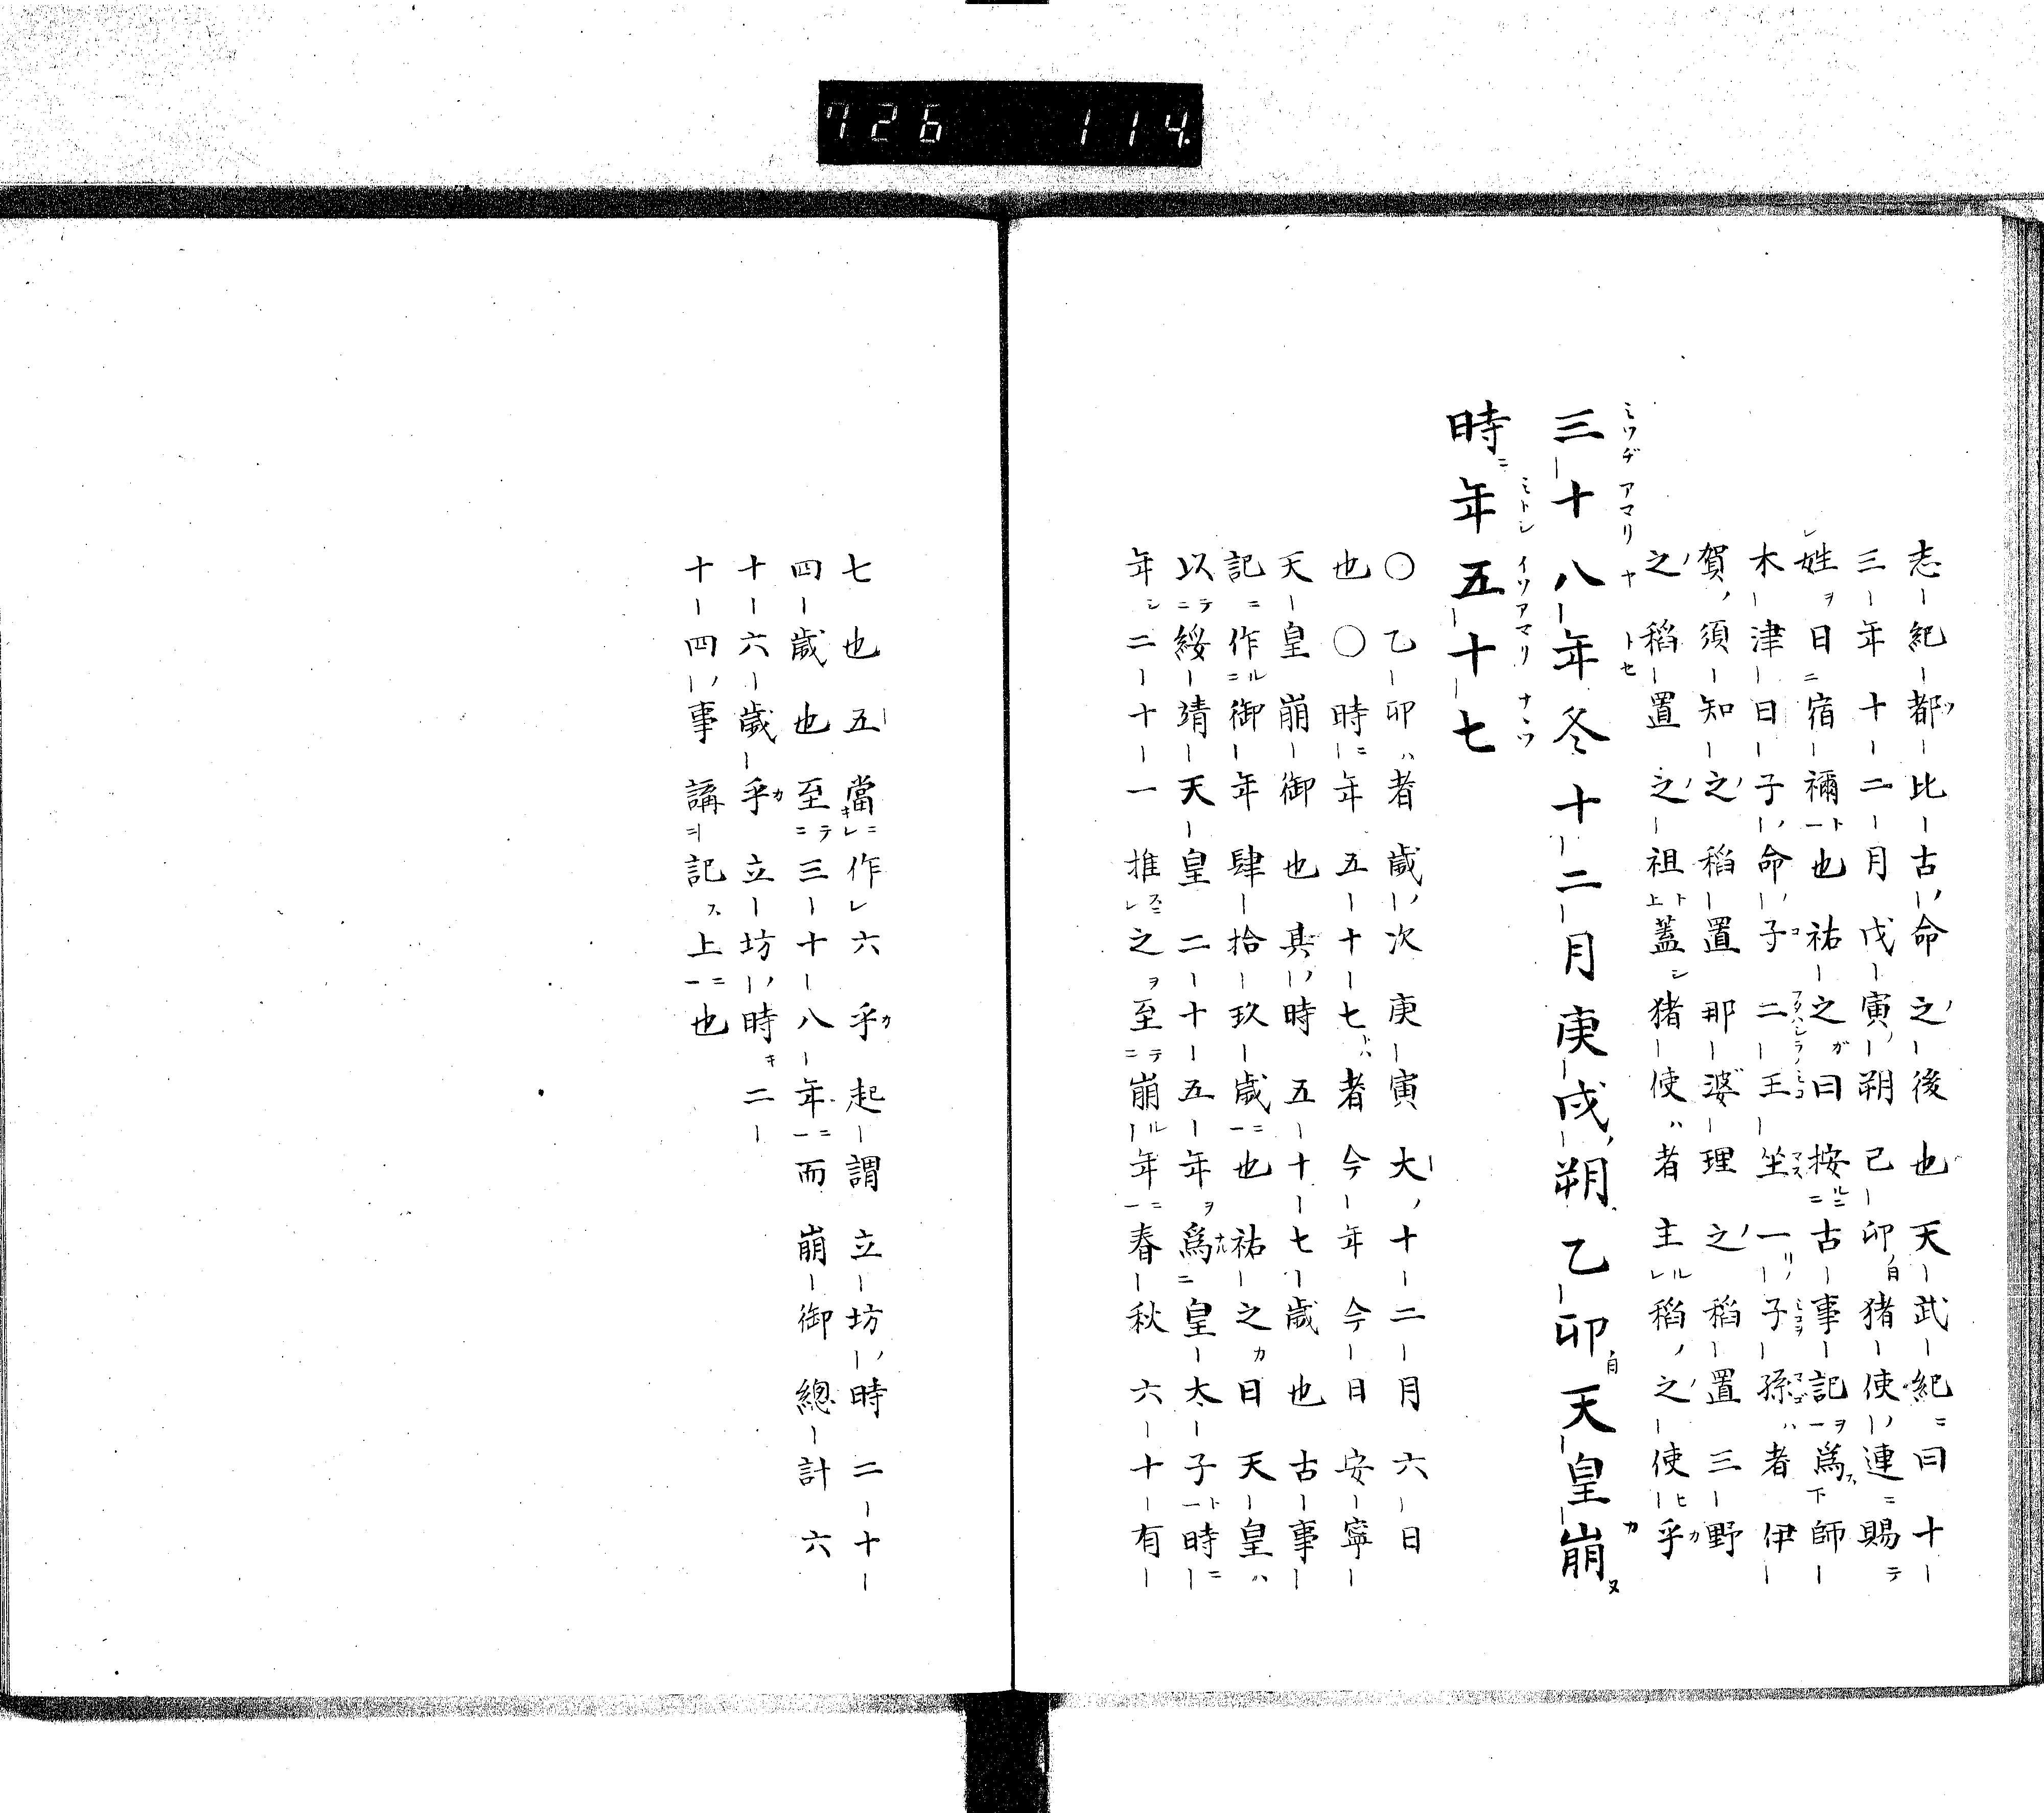 726 114
志紀都比古命之後也天武紀曰十
三年十二月戊寅朔己卯猪使連賜
姓曰宿禰也祐之曰按古事記爲師
木津日子命子二王坐一子孫者伊
賀須知之稻置那婆理之稻置三野
之稻置之祖蓋猪使者主稻之使乎
三十八年冬十二月庚戌朔乙卯天皇崩
時年五十七
〇乙卯者歲次庚寅大十二月六日
也〇時年五十七者今年今日安寧
天皇崩御也其時五十七歲也古事
記作御年肆拾玖歲也祐之曰天皇
以綏靖天皇二十五年爲皇太子時
年二十一推之至崩年春秋六十有
七也五當作六乎起謂立坊時二十
四歲也至三十八年而崩御總計六
十六歲乎立坊時二
十四事講記上也